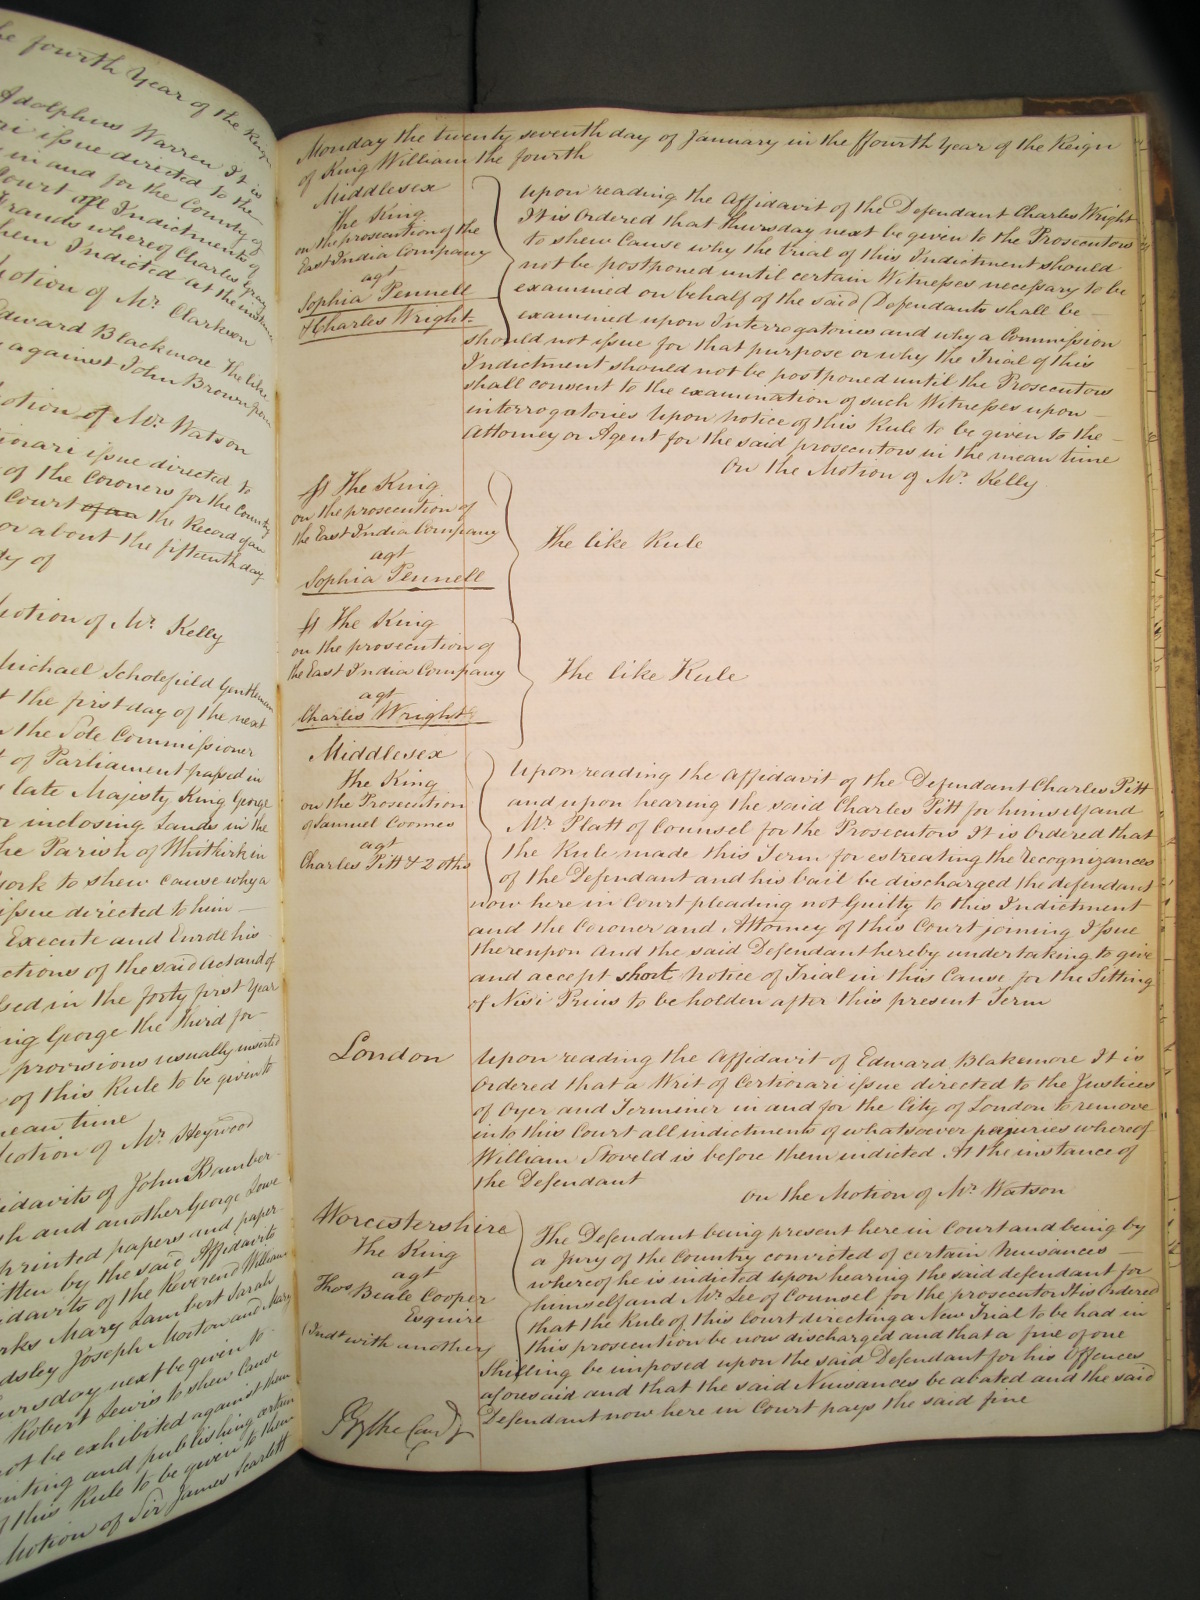 the fourth Year of the Reign
Adolphus Warren It is
issue directed to the
in and for the County of
Court all Indictments of
Frauds whereof Charles
them Indicted at the instance
Motion of Mr. Clarkson
Edward Blackmore The like
against John Brown
Motion of Mr. Watson
issue directed to
of the Coroners for the County
Court of an the Record of an
or about the fifteenth day
of
Motion of Mr. Kelly
Michael Scholefield Gentleman
the first day of the next
the Sole Commissioner
of Parliament passed in
late Majesty King George
inclosing Lands in the
the Parish of Whitkirk in
York to shew cause why a
issue directed to him
Execute and Enrol his
of the said Act and of
passed in the forty first Year
King George the third for
provisions usually inserted
of this Rule to be given to
mean time
Motion of Mr. Heywood
Affidavits of John Bamber
and another George Lowe
printed papers and paper
written by the said Affidavits
Affidavits of the Reverend William
Mary Lambert Sarah
Joseph Morton and Mary
Thursday next be given to
Robert Lewis to shew Cause
not be exhibited against them
printing and publishing certain
of this Rule to be given to them
Motion of Sir James Scarlett
Monday the twenty seventh day of January in the ffourth Year of the Reign
of King William the fourth
Middlesex
The King
on the prosecution of the
East India Company
agt
Sophia Pennell
& Charles Wright
Upon reading the Affidavit of the Defendant Charles Wright
It is Ordered that thursday next be given to the Prosecutors
to shew Cause why the trial of this Indictment should
not be postponed until certain Witnesses necessary to be
examined on behalf of the said Defendants shall be
examined upon Interrogatories and why a Commission
should not issue for that purpose or why the Trial of this
Indictment should not be postponed until the Prosecutors
shall consent to the examination of such Witnesses upon
interrogatories Upon notice of this Rule to be given to the
Attorney or Agent for the said prosecutors in the mean time
On the Motion of Mr. Kelly
The King
on the prosecution of
the East India Company
agt
Sophia Pennell
The like Rule
The King
on the prosecution of
the East India Company
agt
Charles Wright
The like Rule
Middlesex
The King
on the Prosecution
of Samuel Coomes
agt
Charles Pitt & 2 oths
Upon reading the Affidavit of the Defendant Charles Pitt
and upon hearing the said Charles Pitt for himself and
Mr. Platt of Counsel for the Prosecutors It is Ordered that
the Rule made this Term for estreating the recognizances
of the Defendant and his bail be discharged the defendant
now here in Court pleading not Guilty to this Indictment
and the Coroner and Attorney of this Court joining Issue
thereupon And the said Defendant hereby undertaking to give
and accept short notice of Trial in this Cause for the Sitting
of Nisi Prius to be holden after this present Term
London
Upon reading the Affidavit of Edward Blakemore It is
Ordered that a Writ of Certiorari issue directed to the Justices
of Oyer and Terminer in and for the City of London to remove
into this Court all indictments of whatsoever perjuries whereof
William Stoveld is before them indicted At the instance of
the Defendant
On the Motion of Mr. Watson
Worcestershire
The King
agt
Thos Beale Cooper
Esquire
(Indt with another)
The Defendant being present here in Court and being by
a Jury of the Country convicted of certain Nuisances
whereof he is indicted Upon hearing the said defendant for
himself and Mr. Lee of Counsel for the prosecutor It is Ordered
that the Rule of this Court directing a New Trial to be had in
this prosecution be now discharged and that a fine of one
Shilling be imposed upon the said Defendant for his Offences
aforesaid and that the said Nuisances be abated and the said
Defendant now here in Court pays the said fine